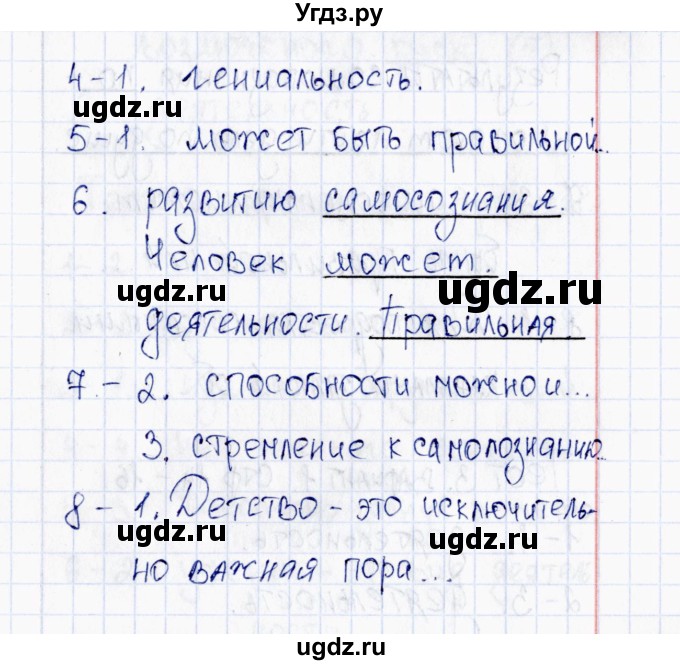 Угдз.ру
4-1. гениальность.
ugdz.ru
ugdz.ru
5-1. может быть правильной..
6. развитию самосознания.
Человек может.
ugdz.ru
деятельности. Правильная.
7-2. способности можно и...
3. стремление к самопознанию..
8-1. Детство - это исключитель-
ugdz.ru
ugdz.ru
но важная пора...
ugdz.ru